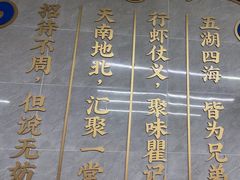 五湖四海 皆为兄弟
行虾仗义，聚味瞿记
天南地北，汇聚一堂
招待不周，但说无妨